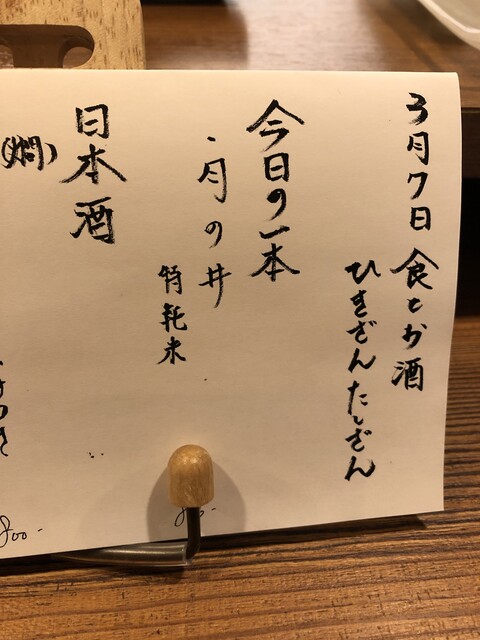 3月7日 食とお酒
ひきざんたしざん
今日の一本
・月の井
特純米
日本酒
(燗)
800-